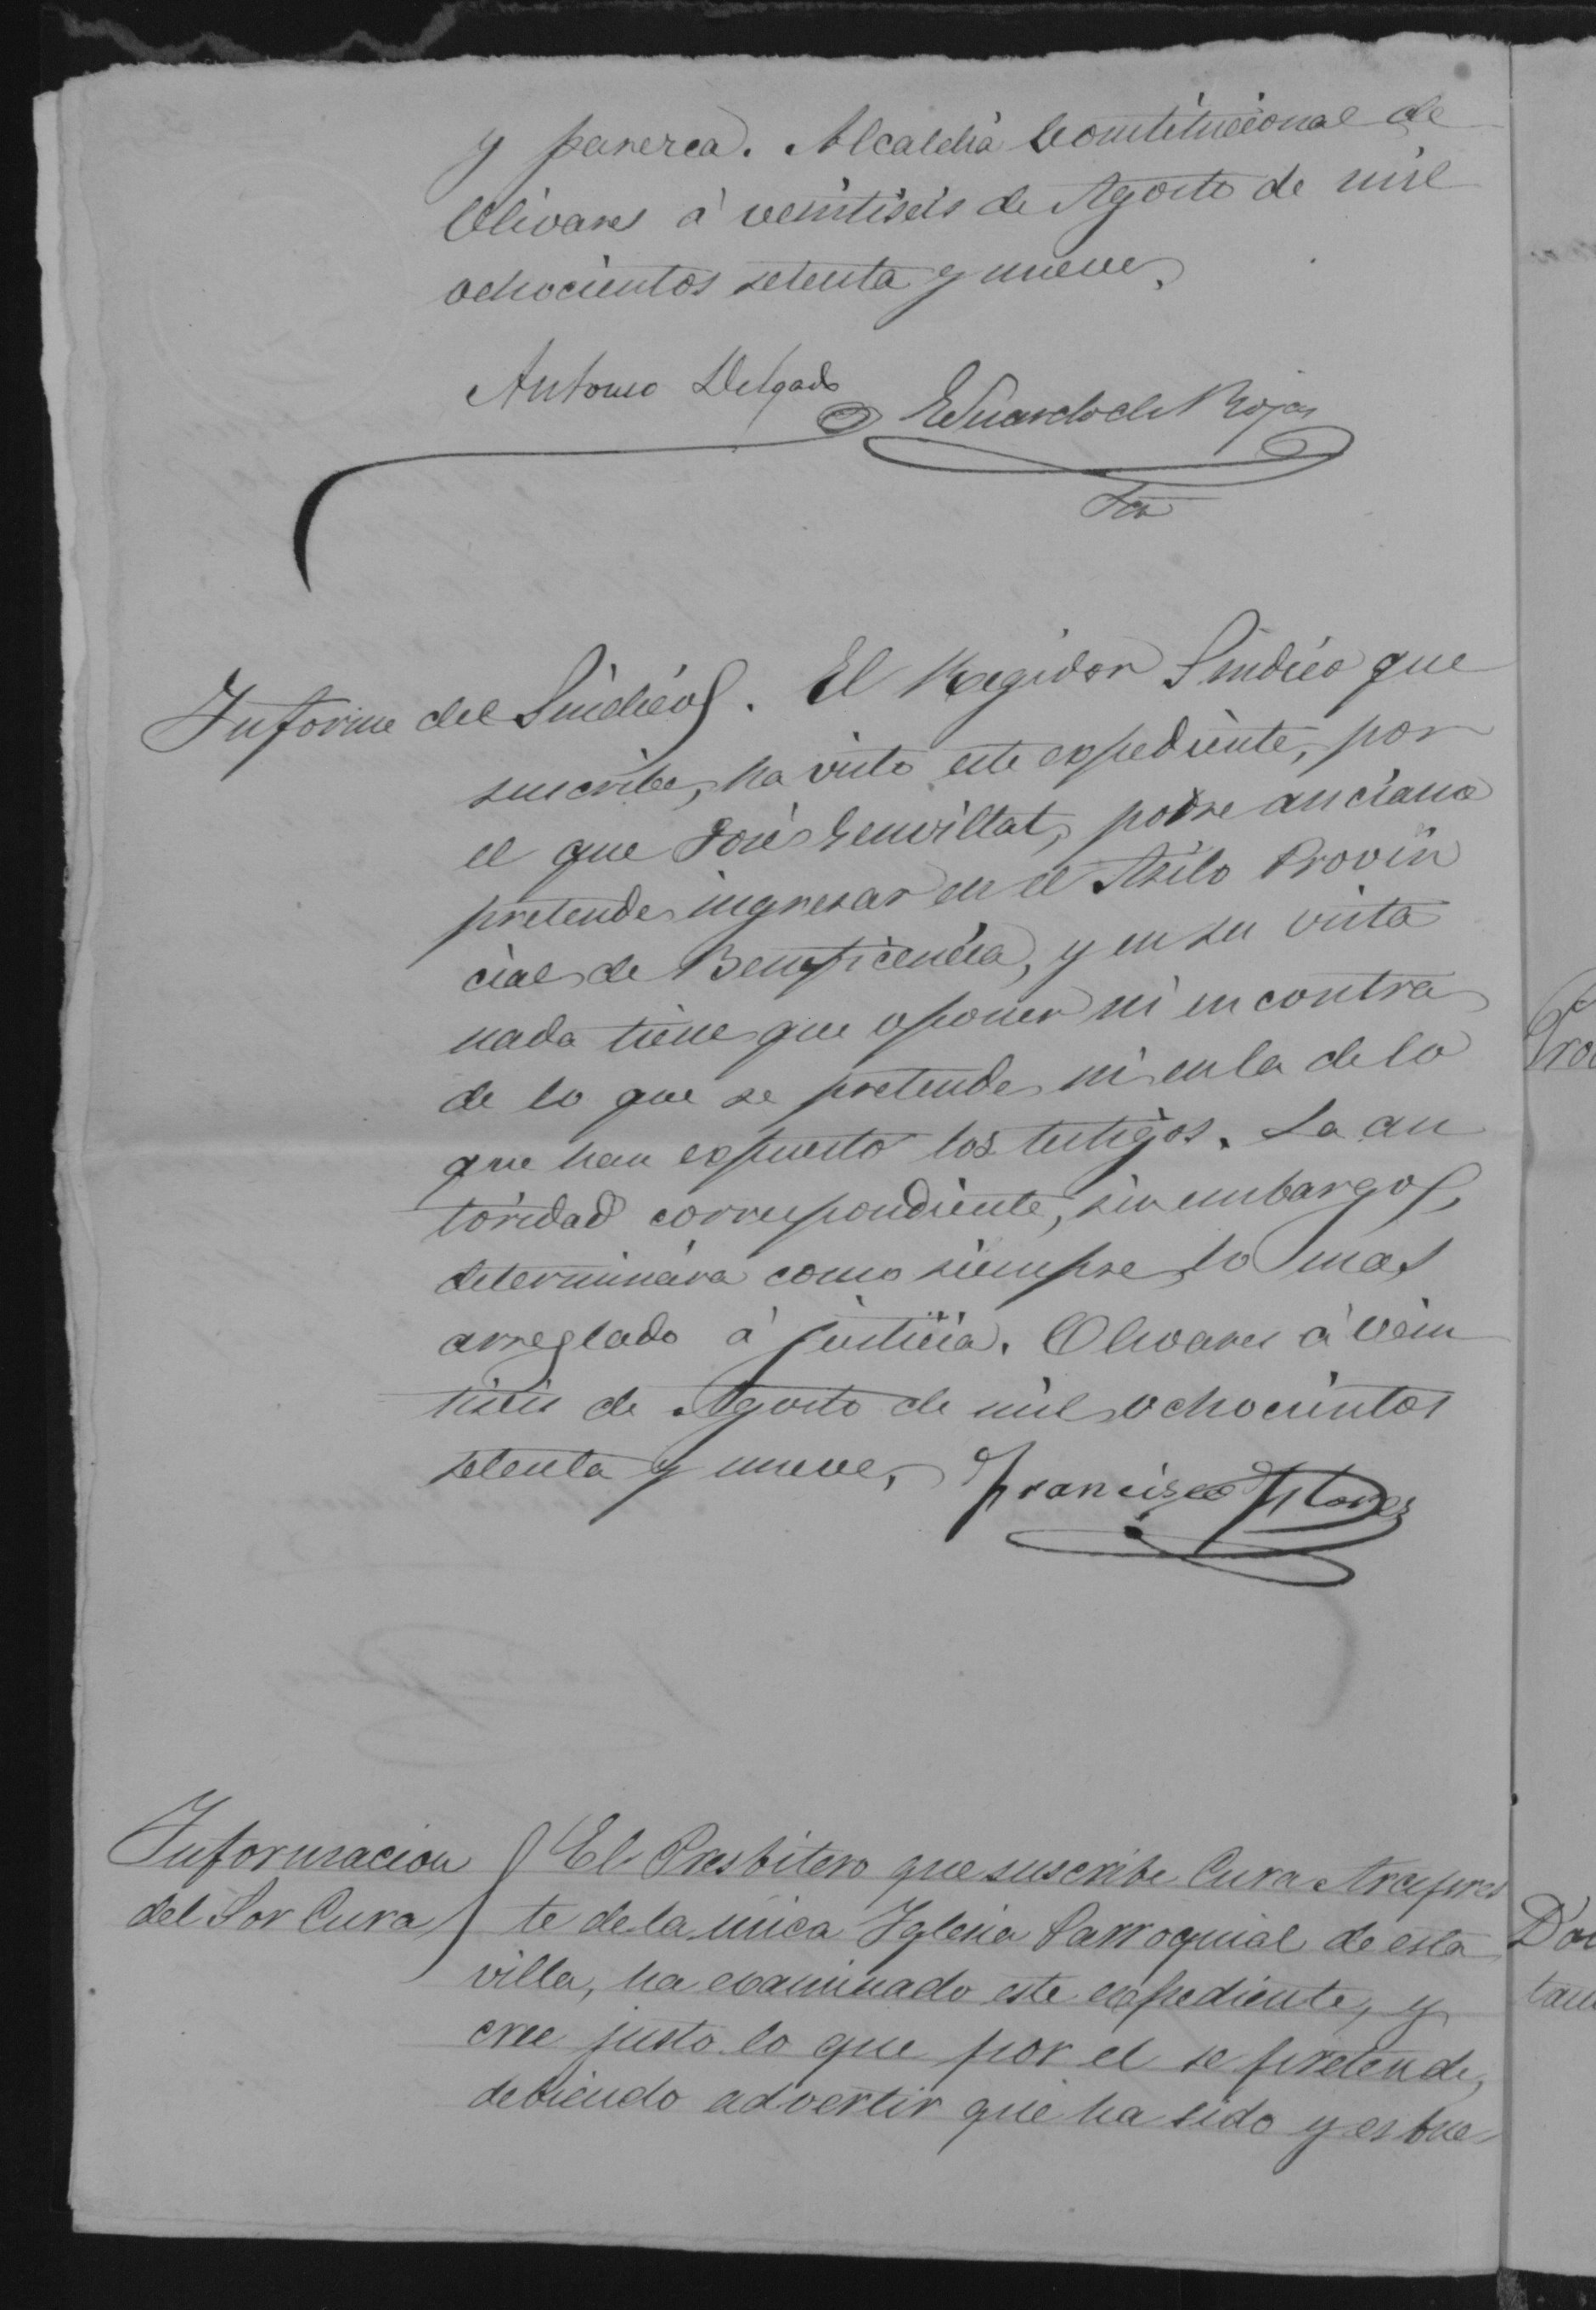 y parerca. Alcaldia Constitucional de
Olivares à veintiseis de Agosto de mil
ochocientos setenta y nueve,
Antonio Delgado
Eduardo de Rojas
Informe del Sindico. El Regidor Sindico que
suscribe, ha visto este expediente, por
el que José, pobre anciano
pretende ingresar en el Asilo Provin
cial de Beneficencia, y en su vista
nada tiene que oponer ni en contra
de lo que se pretende ni en la de lo
que han expuesto los testigos. La au
toridad correspondiente, sin embargo,
determinára como siempre lo mas
arreglado à justicia. Olivares à vein
tiseis de Agosto de mil ochocientos
setenta y nueve, Francisco Flores
Informacion
del Sor Cura
El Presbitero que suscribe Cura Arcipres
te de la unica Iglesia Parroquial de esta
villa, ha examinado este expediente, y
cree justo lo que por el se pretende,
debiendo advertir que ha sido y es bue